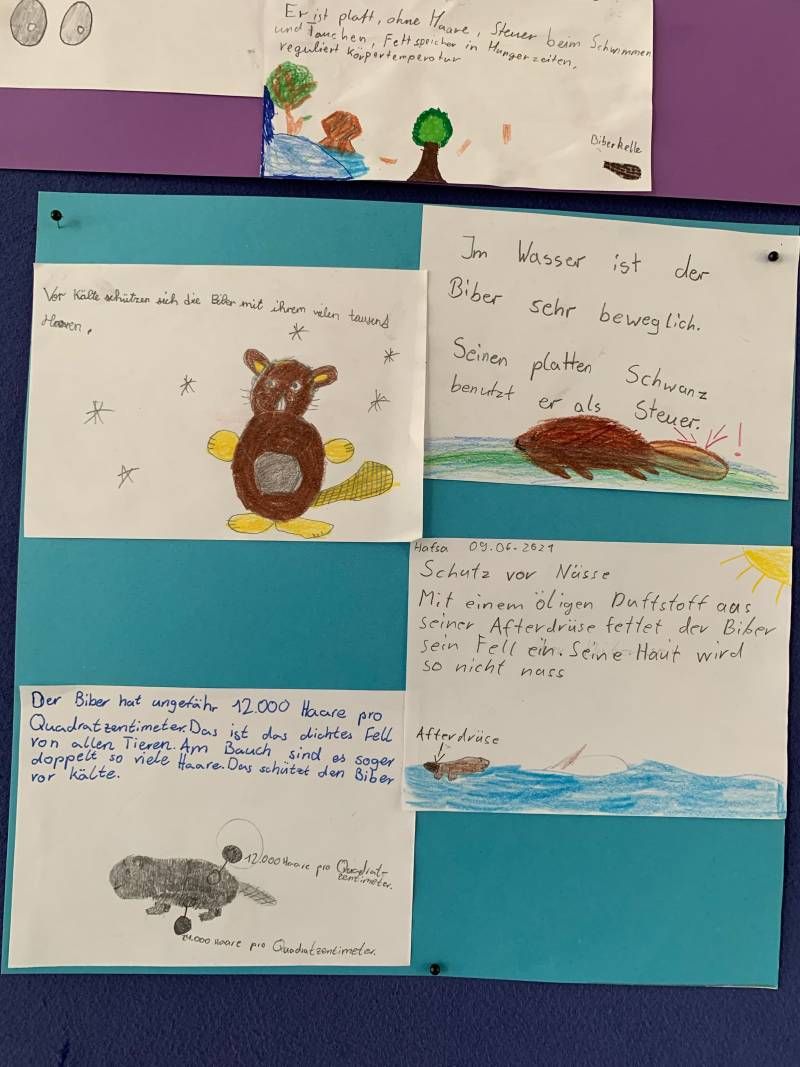 Er ist platt, ohne Haare, Steuer beim Schwimmen
und Tauchen, Fettspeicher in Hungerzeiten,
reguliert Körpertemperatur
Biberkelle
Vor Kälte schützen sich die Biber mit ihrem vielen tausend
Haaren.
Im Wasser ist der
Biber sehr beweglich.
Seinen platten Schwanz
benutzt er als Steuer.
!
Hafsa 09.06.2021
Schutz vor Nässe
Mit einem öligen Duftstoff aus
seiner Afterdrüse fettet der Biber
sein Fell ein. Seine Haut wird
so nicht nass
Afterdrüse
Der Biber hat ungefähr 12.000 Haare pro
Quadratzentimeter. Das ist das dichtes Fell
von allen Tieren. Am Bauch sind es sogar
doppelt so viele Haare. Das schützt den Biber
vor kälte.
12.000 Haare pro Quadrat-
zentimeter.
24.000 Haare pro Quadratzentimeter.